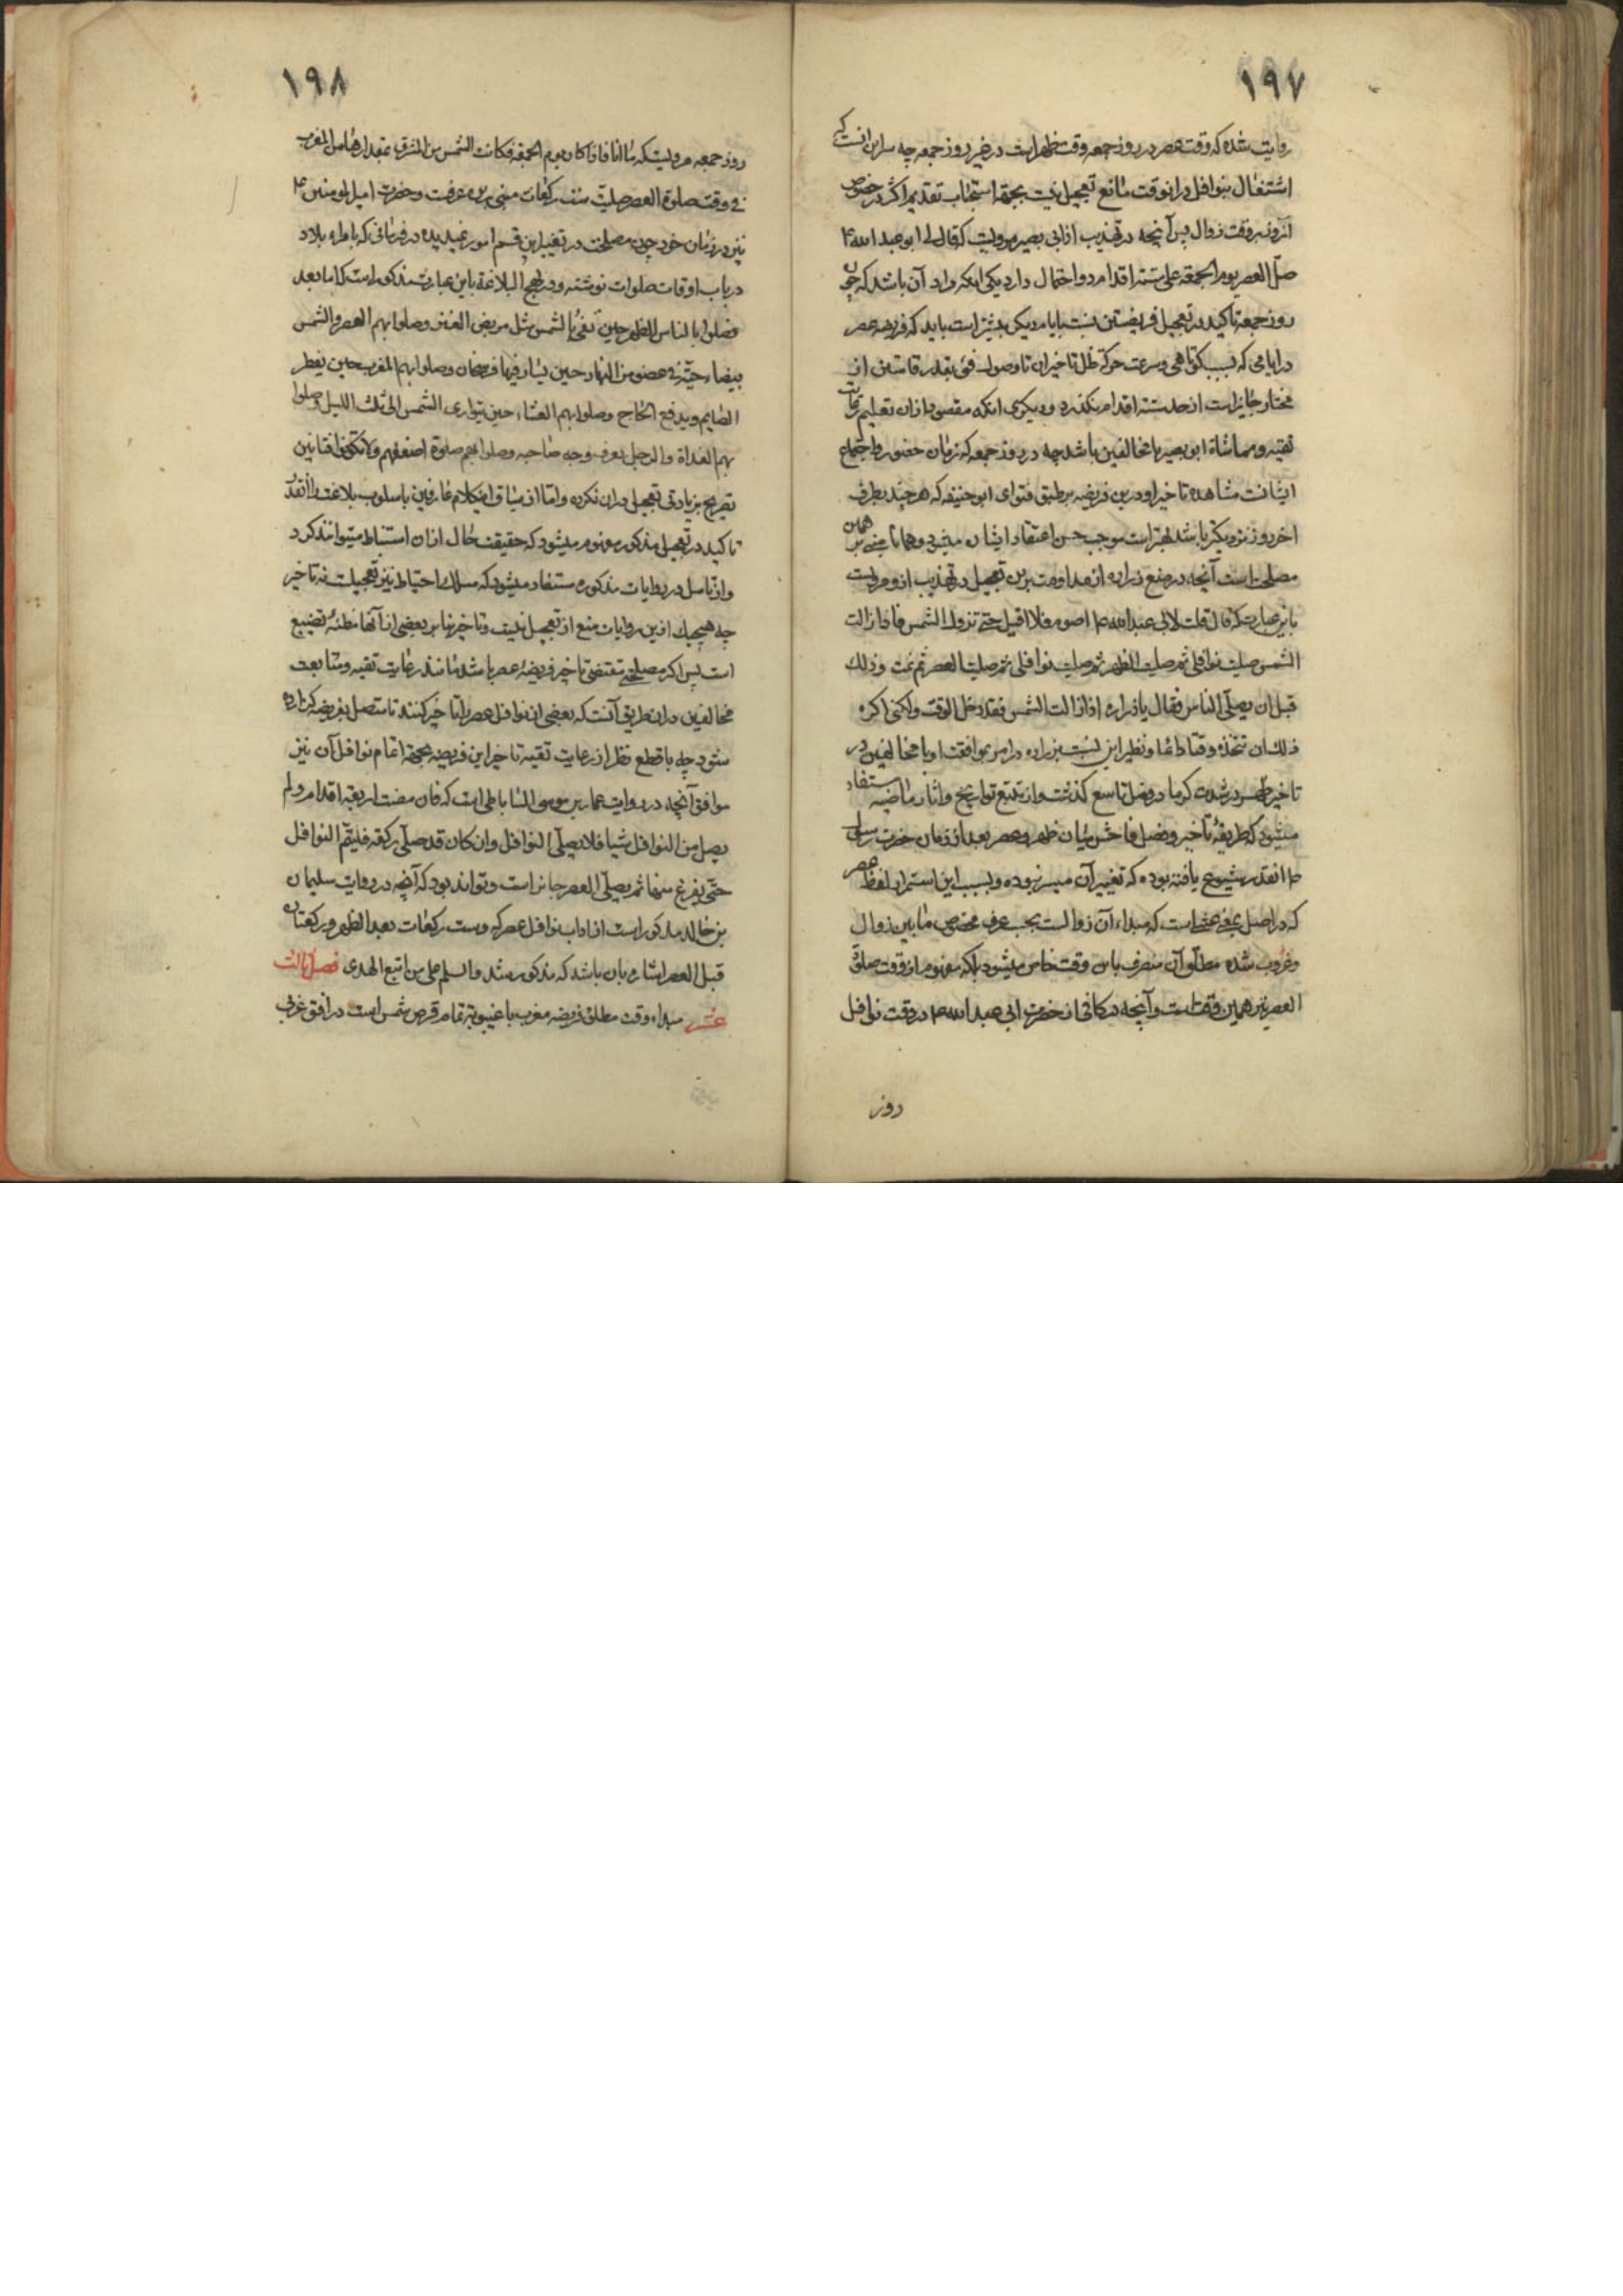 ۱۹۷
روایت شده که وقت عصر در روز جمعه وقت ظهر است در غیر روز جمعه چه سر این آنست که
اشتغال بنوافل در انوقت مانع تعجیل نیست بجهة استحباب تقدیم اکثر در خصوص
آنروز بر وقت زوال پس آنچه در تهذیب از ابی بصیر مرویست که قال لی ابو عبد الله ع
صلّ العصر یوم الجمعة علی ستة اقدام دو احتمال دارد یکی انکه مراد آن باشد که چون
روز جمعه تاکید در تعجیل فریضتین نسبت بایام دیگر بیشتر است باید که فریضه عصر
در ایامی که بسبب کوتاهی و سرعت حرکة ظل تاخیر ان تا وصول فئ بقدر قامتین از
مختار جایز است از حد ستة اقدام نکذرد و دیکری انکه مقصود ازان تعلیم رعایت
تقیه و مماشاة ابو بصیر با مخالفین باشد چه در روز جمعه که زمان حضور و اجتماع
ایشانست مشاهده تاخیر او درین فریضه بر طبق فتوای ابو حنیفه که هر چند بطرف
اخر روز نزدیکتر باشد بهتر است موجب حسن اعتقاد ایشان میشود و همانا مبنی بر همین
مصلحت است آنچه در منع زراره از مداومت برین تعجیل در تهذیب ازو مرویست
باین عبارت که قال قلت لابی عبد الله ع اصوم فلا اقیل حتی تزول الشمس فاذا زالت
الشمس صلیت نوافلی ثم صلیت الظهر ثم صلیت نوافلی ثم صلیت العصر ثم نمت و ذلک
قبل ان یصلّی الناس فقال یا زراره اذا زالت الشمس فقد دخل الوقت ولکنی اکره
ذلک ان تتخذه وقتا دائما و نظیر این نسبت بزراره در امر بموافقت او با مخالفین در
تاخیر ظهر در شدت کرما در فصل تاسع کذشت و از تتبع تواریخ و اثار ماضیه مستفاد
میشود که طریقهٔ تاخیر و فصل فاحش میان ظهر و عصر بعد از زمان حضرت رسالت
ص انقدر شیوع یافته بوده که تغییر آن میسر نبوده و بسبب این استمرار لفظ عصر
که در اصل بمعنی عشی است که مبداء آن زوالست بحسب عرف مختص مابین زوال
و غروب شده مطلق آن منصرف باین وقت خاص میشود بلکه مفهوم از وقت صلوة
العصر نیز همین وقت است و آنچه در کافی از حضرت ابی عبد الله ع در وقت نوافل
روز
۱۹۸
روز جمعه مرویست که ما انا فاذا کان یوم الجمعة فکانت الشمس من المشرق بمقدارها من المغرب
فی وقت صلوة العصر صلیت ست رکعات مبنی برین عرفست و حضرت امیر المومنین ع
نیز در زمان خود چون مصلحت در تغییر این قسم امور ندیده در فرمانی که بامراء بلاد
در باب اوقات صلوات نوشته و در نهج البلاغة باین عبارت مذکور است که اما بعد
فصلوا بالناس الظهر حین تفئ الشمس مثل مربض العنز و صلوا بهم العصر و الشمس
بیضاء حیّة فی عضو من النهار حین یسار فیها فرسخان و صلوا بهم المغرب حین یفطر
الصایم و یدفع الحاج و صلوا بهم العشاء حین یتواری الشمس الی ثلث اللیل و صلوا
بهم الغداة و الرجل یعرف وجه صاحبه و صلوا بهم صلوة اضعفهم و لا تکونوا فتانین
تصریح بزیادتی تعجیل دران نکرده و اما از سیاق اینکلام عارفین باسلوب بلاغت را انقدر
تاکید در تعجیل مذکور مفهوم میشود که حقیقت حال ازان استنباط میتوانند کرد
و از تامل در روایات مذکوره مستفاد میشود که مسلک احتیاط نیز تعجیلست نه تاخیر
چه هیچیک ازین روایات منع از تعجیل نیست و تاخیر بنا بر بعضی از آنها مظنهٔ تضییع
است پس اکر مصلحتی مقتضی تاخیر فریضهٔ عصر باشد مانند رعایت تقیه و متابعت
مخالفین دران طریق آنست که بعضی از نوافل عصر را تاخیر کنند تا متصل بفریضه کزارده
شود چه با قطع نظر از رعایت تقیه تاخیر این فریضه بجهة اتمام نوافل آن نیز
موافق آنچه در روایت عمار بن موسی الساباطی است که فان مضت اربعة اقدام و لم
یصل من النوافل شیا فلا یصلّی النوافل و ان کان قد صلّی رکعة فلیتمّ النوافل
حتی یفرغ منها ثم یصلّی العصر جایز است و تواند بود که آنچه در روایت سلیمان
بن خالد مذکور است از اداب نوافل عصر که و ست رکعات بعد الظهر و رکعتان
قبل العصر اشاره بان باشد که مذکور شد و السلم علی من اتبع الهدی فصل ثالث
عشر مبداء وقت مطلق فریضه مغرب با غیبوبة تمام قرص شمس است در افق غربی